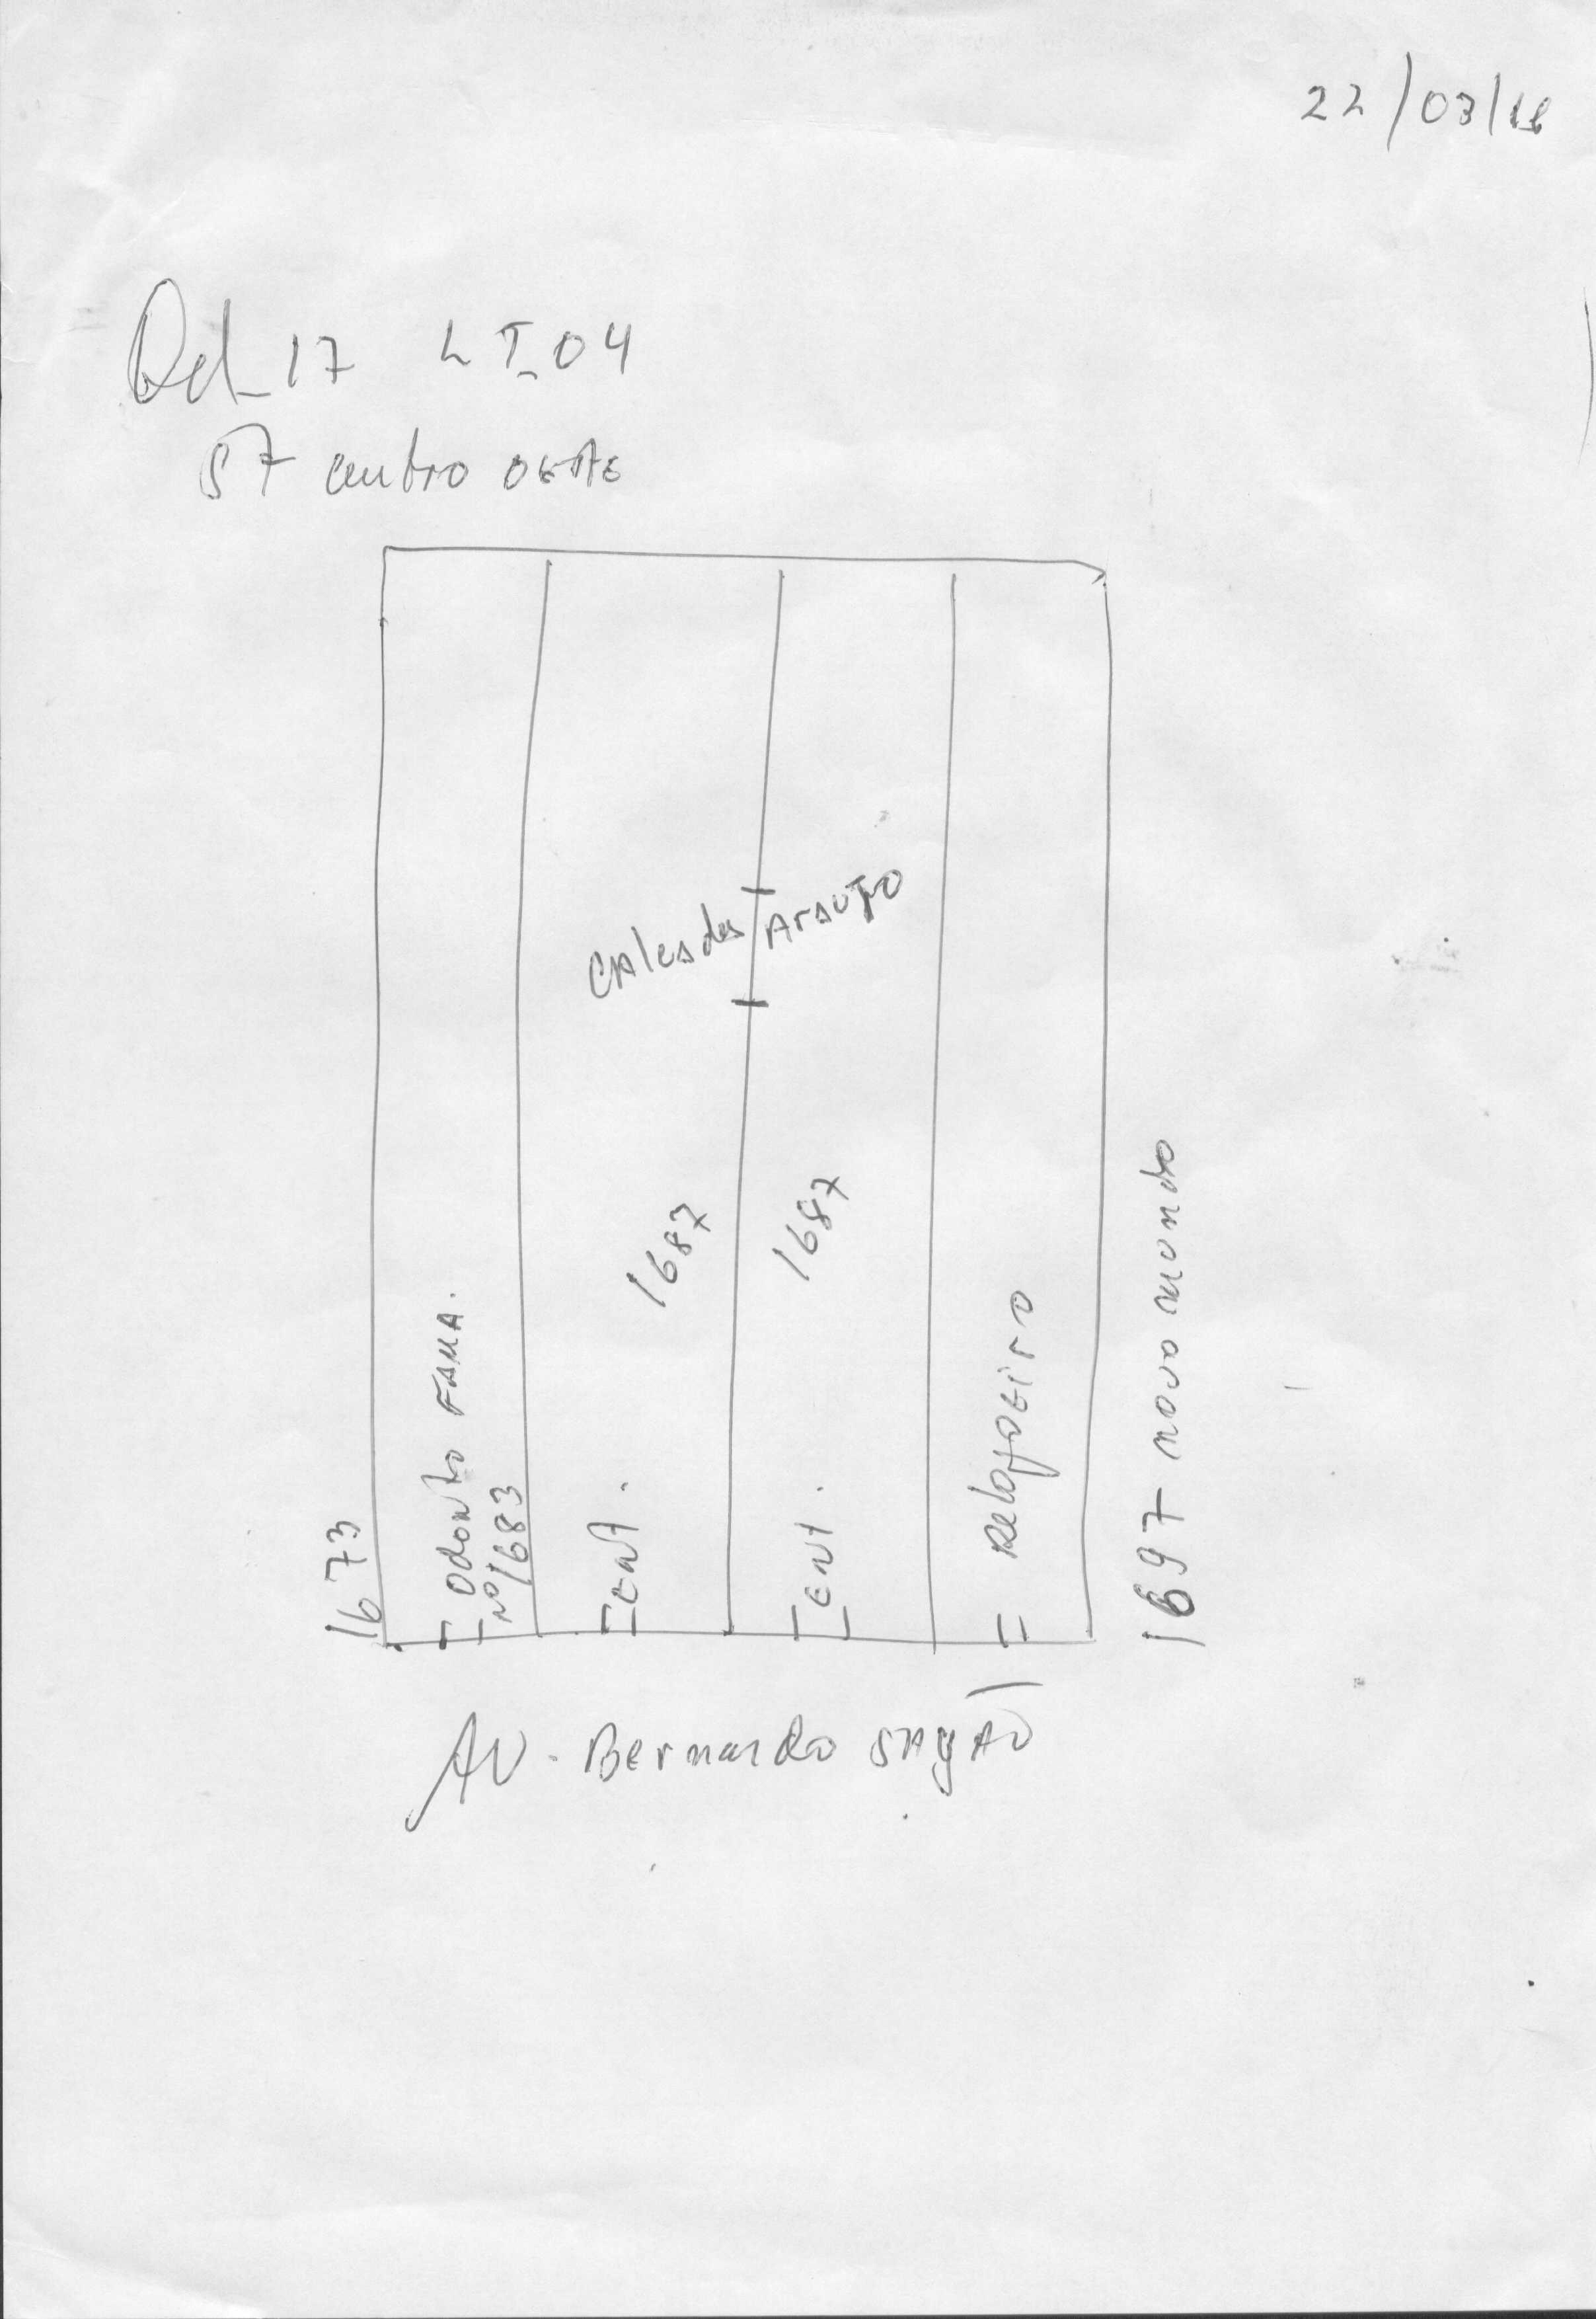 22/03/18
Qd_17 LT_04
ST centro OESTE
CALCADOS ARAUJO
1687
1687
1673
ODONTO FAMA.
Nº1683
ENT.
ENT.
Relojoeiro
1697 novo mundo
AV. Bernardo SAYAO